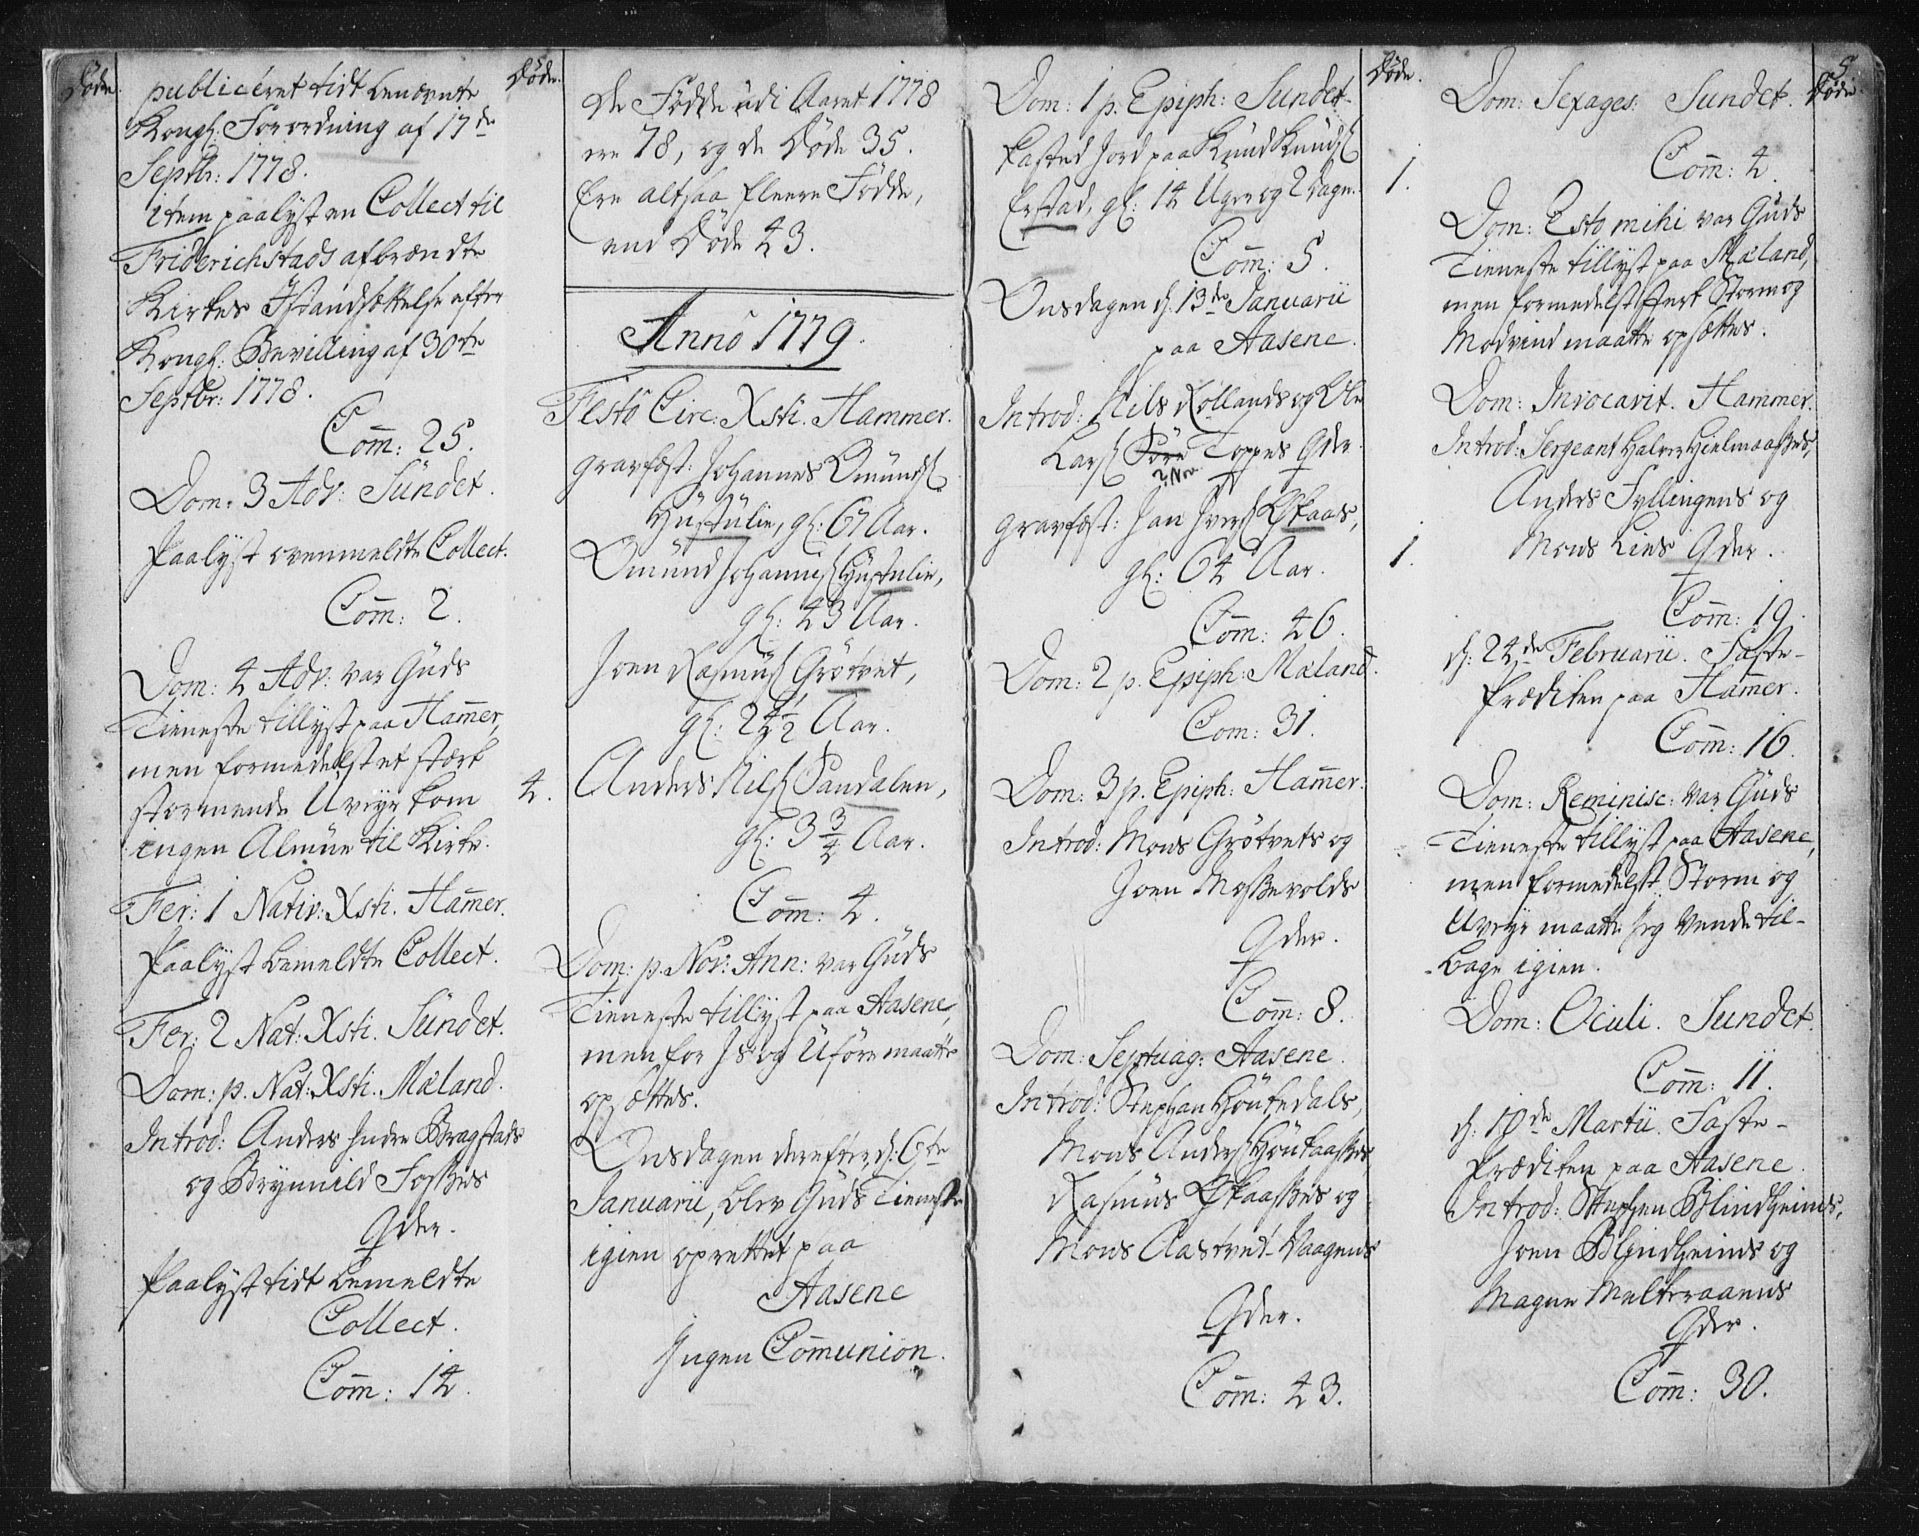 Döde.
publiceret tidt benævnte
Kongl: Forordning af 17de
Septbr: 1778.
item paalyst en Collect til
Friderichstads afbrændte
Kirkes Istandsættelse efter
Kongl: Bevilling af 30te
Septbr: 1778.
Com̄: 25.
Dom: 3 Adv: Sündet.
Paalyst ovenmeldte Collect.
Com̄: 2.
Dom: 4 Adv: var Güds
Tieneste tillyst paa Ham̄er,
men formedelst et stærk
stormende Uveyr kom
ingen Almüe til Kirke.
Fer: 1 Nativ: Xsti. Ham̄er.
Paalyst bemeldte Collect.
Fer: 2 Nat: Xsti. Sündet.
Dom: p. Nat: Xsti. Mæland.
Introd: Anders Indre Bragstads
og Brynnild Foskes
Qder.
Paalyst tidt bemeldte
Collect.
Com̄: 14.
Döde.
De Födde udi Aaret 1778
ere 78, og de Döde 35.
Ere altsaa fleere Födde,
end Döde 43.
Anno 1779.
Festo Circ: Xsti. Hammer.
gravfæst: Johannes Omünds
Hustülie, gl: 67 Aar.
Omünd Johannis Hustulie,
gl: 43 Aar.
Joen Rasmus Grötvet,
gl: 24 1/2 Aar.
4. Anders Nils Sandalen,
gl: 3 3/4 Aar.
Com̄: 4.
Dom: p. Nov: Ann: var Güds
Tieneste tillyst paa Aasene,
men for Is og Uföre maatte
opsættes.
Onsdagen derefter d: 6te
Januarii, blev Guds Tieneste
igien oprettet paa
Aasene
Ingen Com̄union.
Dom: 1 p. Epiph: Sundet
kasted Jord paa Knud Knuds
Erstad, gl: 14 Uger og 2 dage.
Com̄: 5.
Onsdagen d: 13de Januarii
paa Aasene.
Introd: Nils Rollands og Ole
Lars Toppes Qder.
gravfæst: Jan Ivers Öskaas,
gl: 64 Aar.
Com̄: 46.
Dom: 2 p. Epiph: Mæland.
Com: 31.
Dom: 3 p. Epiph: Ham̄er.
Introd: Mons Grötvets og
Joen Moskevolds
Qder.
Com̄: 8.
Dom: Septuag: Aasene.
Introd: Stephan Höükedals,
Mons Anders Höükaaskes
Rasmus Öskaaskes og
Mons Aastvet-Vaagens
Qder.
Com̄: 43.
Döde.
1.
1.
5
Döde.
Dom: Sexages: Sundet.
Com̄: 4.
Dom: Esto mihi var Güds
Tieneste tillyst paa Mæland,
men formedelst sterk Storm og
Modvind maatte opsættes.
Dom: Invocavit. Hammer.
Introd: Sergeant Halver Hielmaaskes,
Anders Fyllingens og
Mons Lies Qder.
Com̄: 19.
d: 24de Februarii. Faste-
Prædiken paa Ham̄er.
Com̄: 16.
Dom: Reminisc: var Güds
Tieneste tillyst paa Aasene,
men formedelst Storm og
Uveyr maatte jeg vende til-
bage igien.
Dom: Oculi. Sundet.
Com̄: 11.
d: 10de Martii. Faste-
Prædiken paa Aasene.
Introd: Stephen Blindheims,
Joen Blindheims og
Magne Melteraaens
Qder.
Com̄: 30.